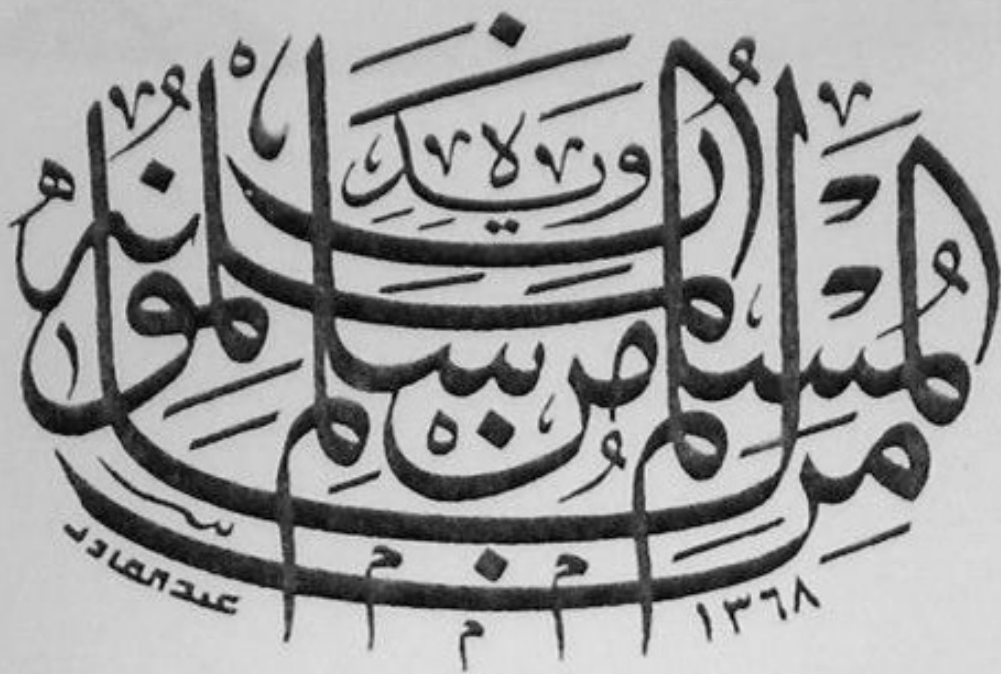 المسلم من سلم المسلمون من لسانه ويده
عبد القادر
١٣٦٨